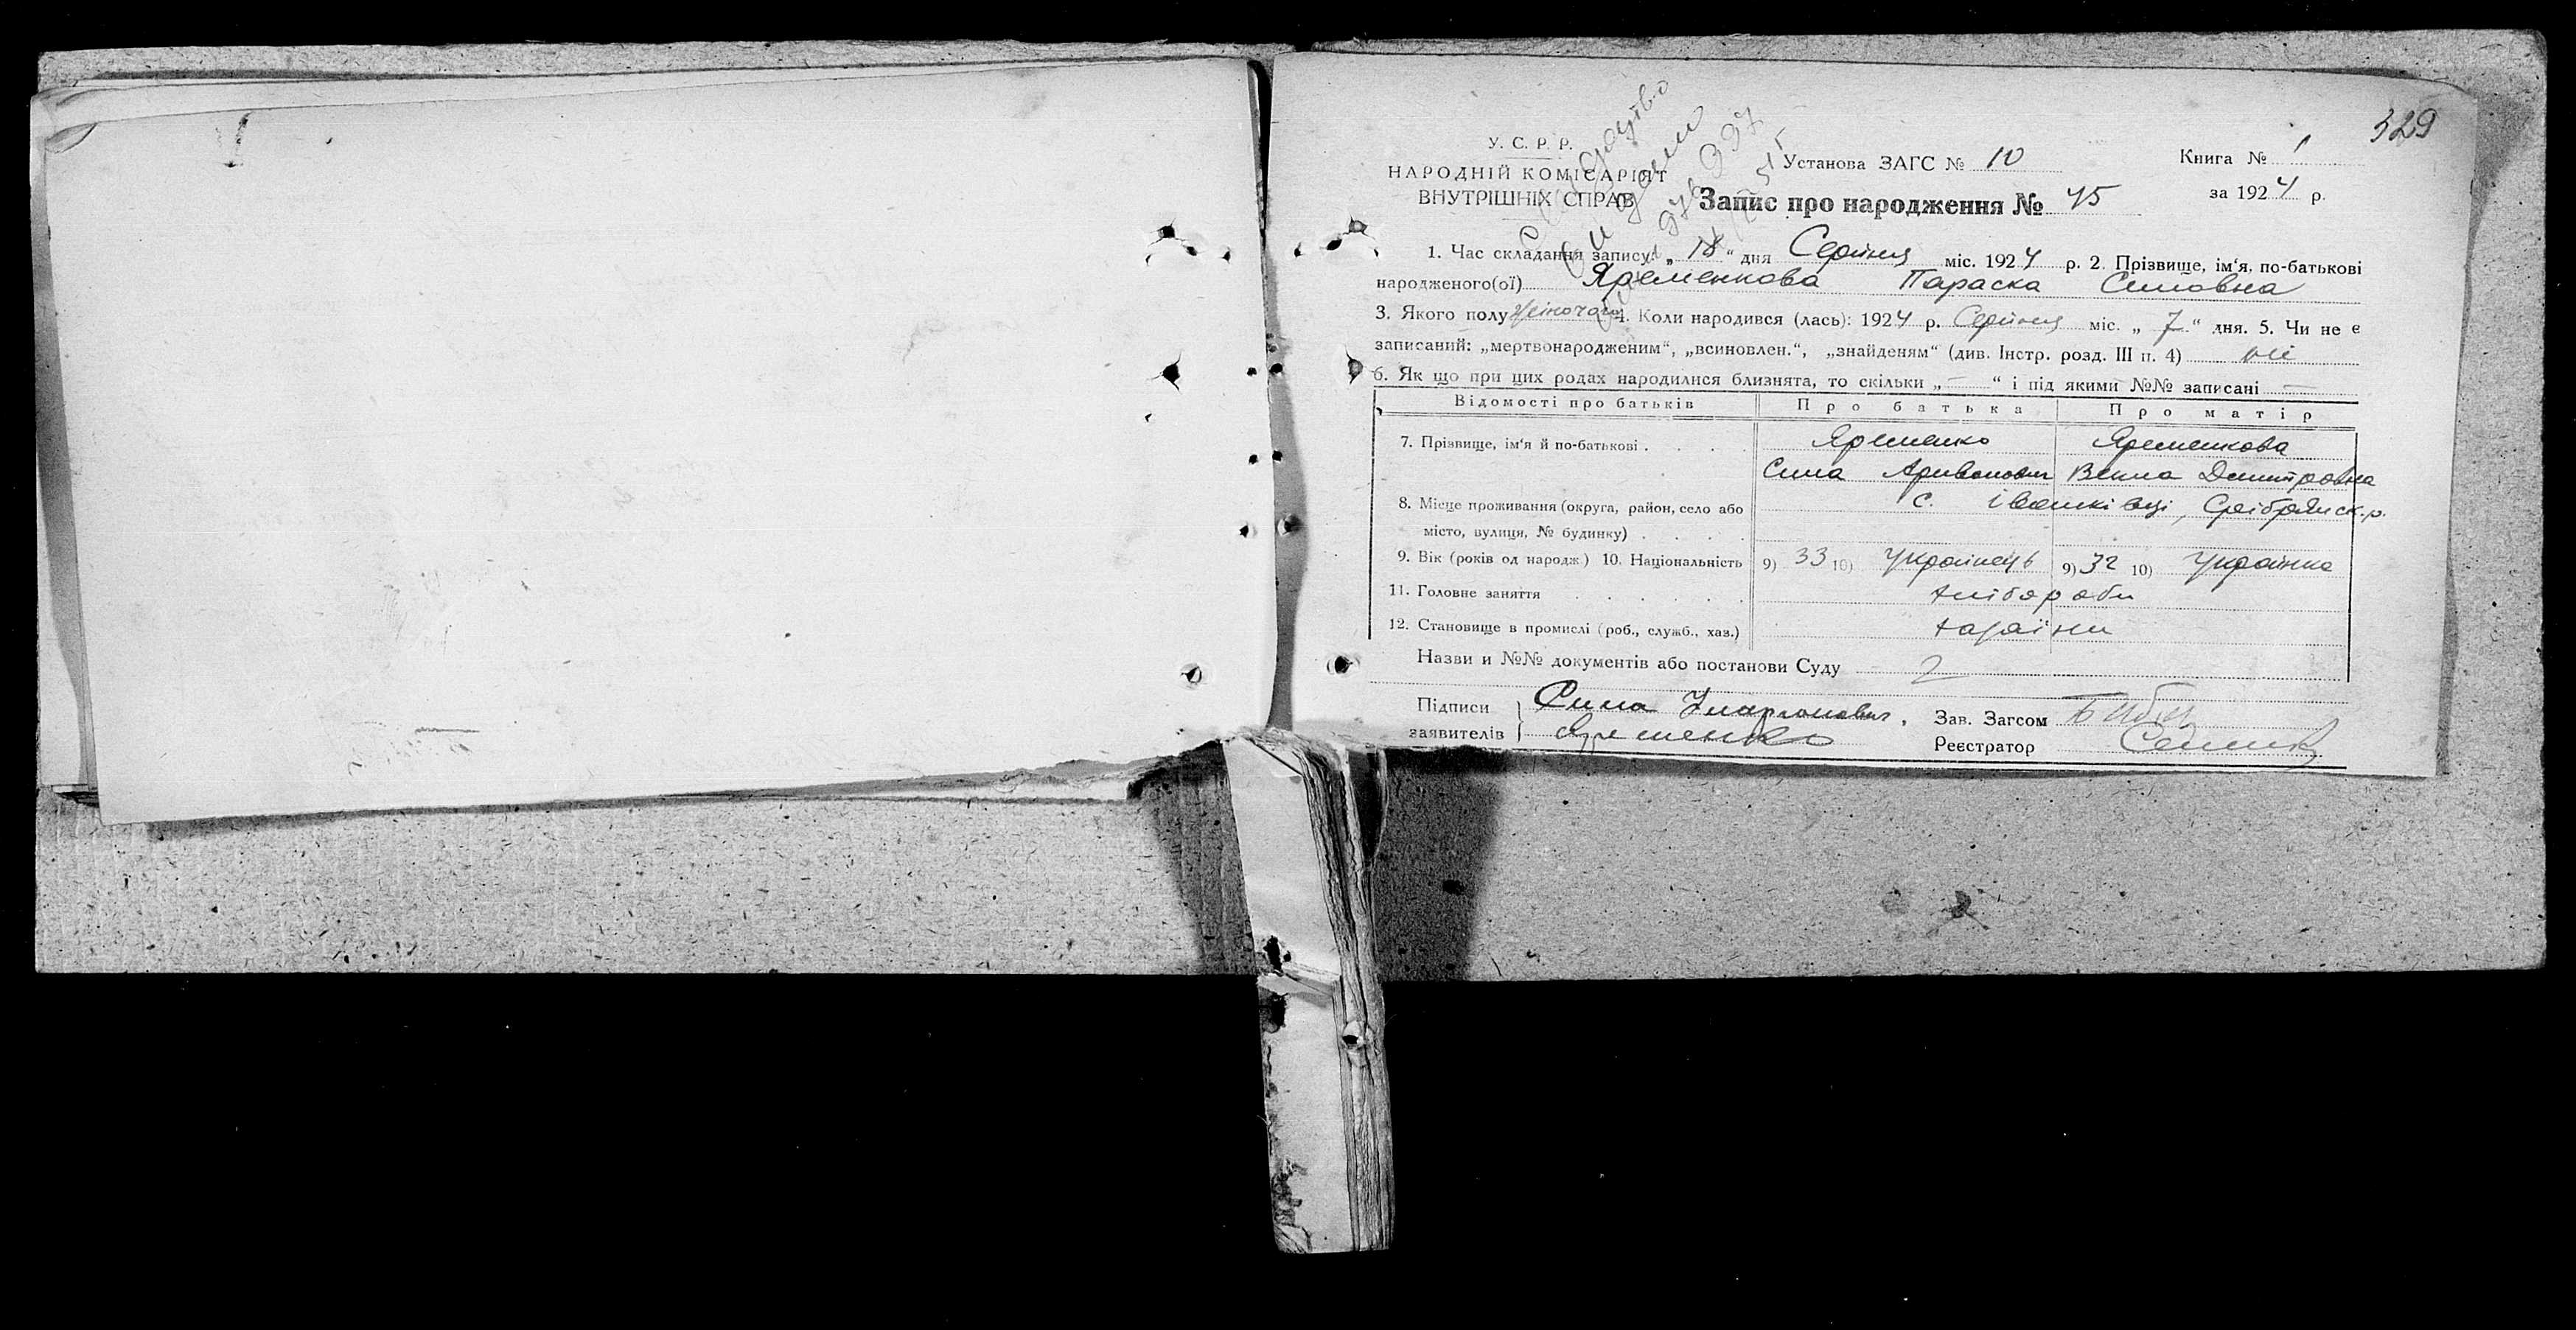 329
У. С. Р. Р.
НАРОДНІЙ КОМІСАРІЯТ
ВНУТРІШНІХ СПРАВ
Установа ЗАГС № 10
Книга № 1
за 1924 р.
Запис про народження № 45
1. Час складання запису: „ 18 “ дня Серпня міс. 1924 р. 2. Прізвище, ім‘я, по-батькові
народженого(ої) Яременкова Параска Силовна
3. Якого полу жіночого 4. Коли народився (лась): 1924 р. Серпня міс. „ 7 “ дня. 5. Чи не є
записаний: „мертвонародженим“, „всиновлен.“, „знайденям“ (див. Інстр. розд. III п. 4) ні
6. Як що при цих родах народилися близнята, то скільки „ — “ і під якими №№ записані —
Відомості про батьків Про батька Про матір
7. Прізвище, ім‘я й по-батькові Яременко Яременкова
Сила Векла Дмитровна
8. Місце проживання (округа, район, село або с. Івашківці, Срібрянск. р.
місто, вулиця, № будинку)
9. Вік (років од народж.) 10. Національність 9) 33 10) Українець 9) 32 10) Українка
11. Головне заняття хлібороби
12. Становище в промислі (роб., служб., хаз.) хазяїни
Назви и №№ документів або постанови Суду
Підписи Сила
заявителів Яременко
Зав. Загсом
Реєстратор